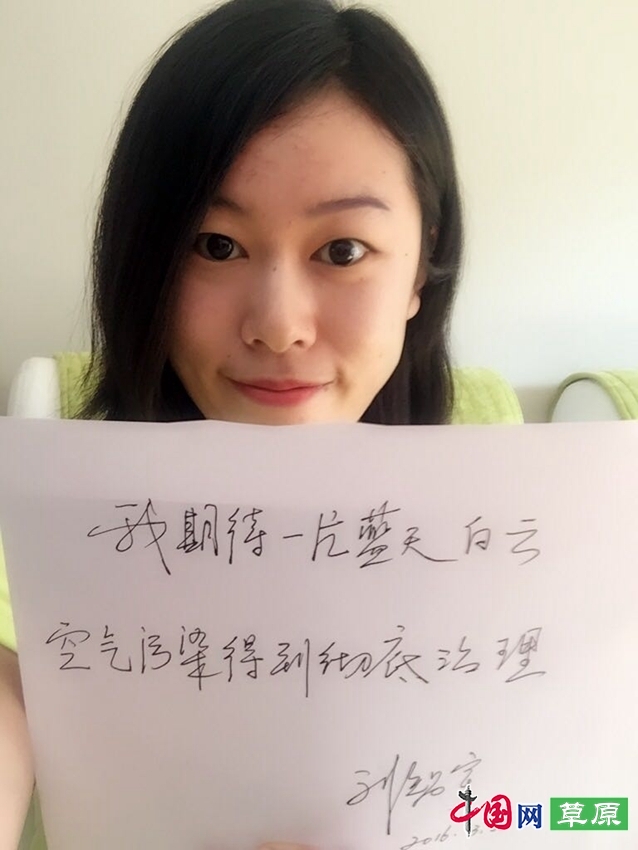 我期待一片蓝天白云
空气污染得到彻底治理
中国网 草原
2016.